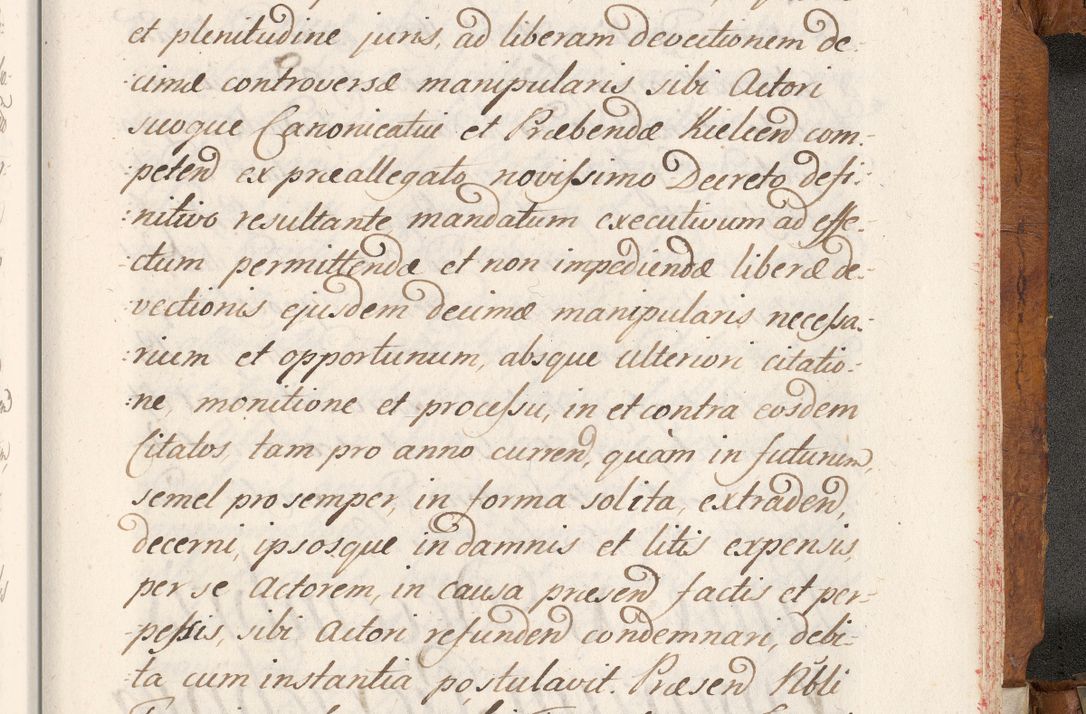 et plenitudine juris, ad liberam devectionem de-
:cimæ controversæ manipularis sibi Actori
suoque Canonicatui et Præbendæ Kielcen̄ com-
peten̄ ex præallegato novissimo Decreto defi-
:nitivo resultante mandatum executivum ad effe-
:ctum permittendæ et non impediendæ liberæ de-
:vectionis ejusdem decimæ manipularis necessa-
:rium et opportunum, absque ulteriori citatio-
:ne, monitione et processu, in et contra eosdem
Citatos, tam pro anno curren̄, quàm in futurum,
semel pro semper, in forma solita, extraden̄,
decerni, ipsosque in damnis et litis expensis,
per se Actorem, in causa præsen̄ factis et per-
-pessis, sibi Actori refunden̄ condemnari, debi-
-ta cum instantia postulavit. Præsen̄ Nbli